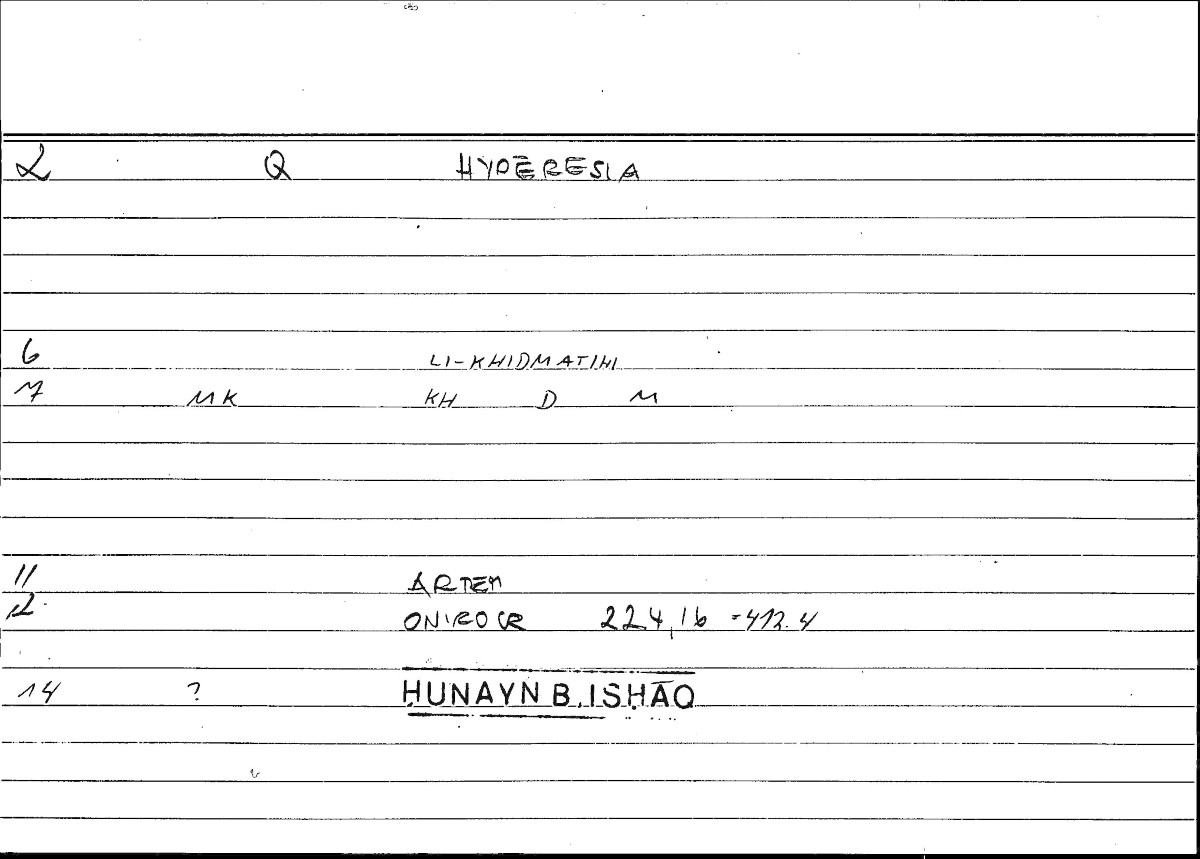 2 Q HYPERESIA
6 LI-KHIDMATIHI
7 MK KH D M
11 ARTEM
12 ONIROCR 224,16 =412.4
14 ? ḤUNAYN B. ISḤĀQ